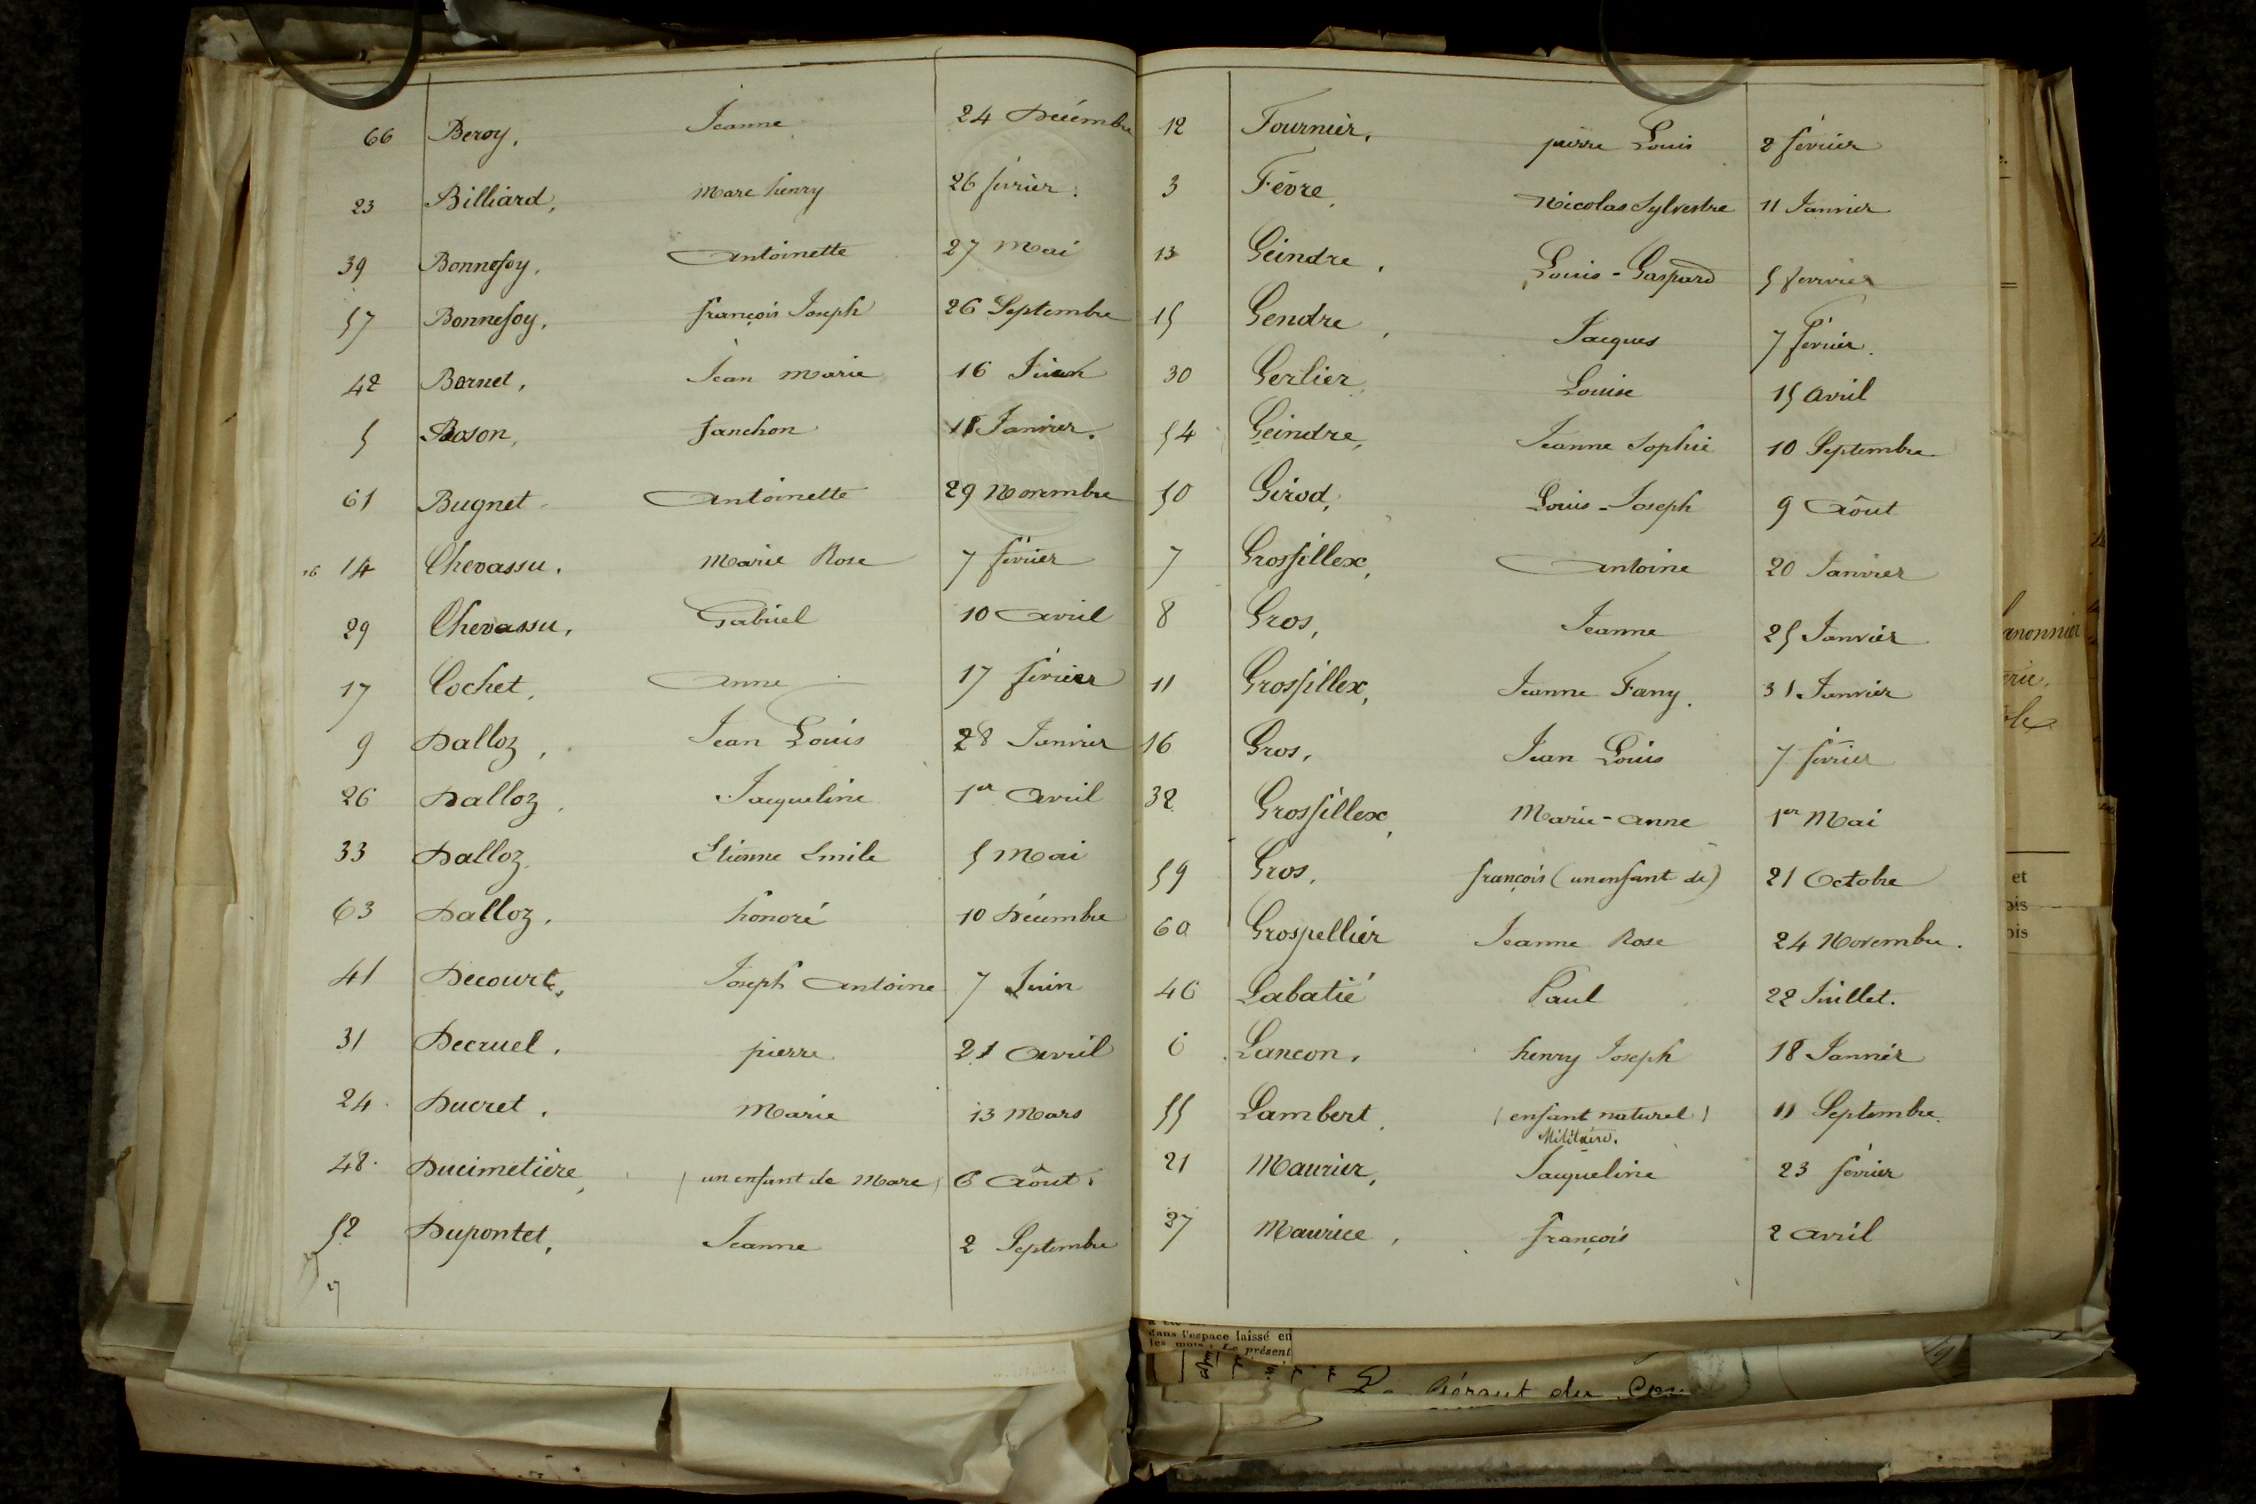 66 Beroy, Jeanne 24 Décembre
23 Billiard, Marc henry 26 février.
39 Bonnefoy, Antoinette 27 Mai
57 Bonnefoy, françois Joseph 26 Septembre
42 Bornet, Jean Marie 16 Juin
5 Boson, fanchon 18 Janvier.
61 Bugnet Antoinette 29 Novembre
16 14 Chevassu. Marie Rose 7 février
29 Chevassu, Gabriel 10 Avril
17 Cochet, Anne 17 février
9 Dalloz, Jean Louis 28 Janvier
26 Dalloz, Jacqueline 1er Avril
33 Dalloz, Etienne Emile 5 Mai
63 Dalloz, honoré 10 Décembre
41 Decourt, Joseph Antoine 7 Juin
31 Decruel, pierre 21 Avril
24 Ducret, Marie 13 Mars
48 Ducimetière, (un enfant de Marc) 6 Août.
52 Dupontet, Jeanne 2 Septembre
12 Fournier, pierre Louis 2 février
3 Fèvre, Nicolas Sylvestre 11 Janvier
13 Geindre, Louis-Gaspard 5 fevrier
15 Gendre, Jacques 7 février.
30 Gerlier, Louise 15 Avril
54 Geindre, Jeanne Sophie 10 Septembre
50 Girod, Louis-Joseph 9 Août
7 Grosfillex, Antoine 20 Janvier
8 Gros, Jeanne 25 Janvier
11 Grosfillex, Jeanne Fany. 31 Janvier
16 Gros, Jean Louis 7 février
32 Grosfillex, Marie-Anne 1er Mai
59 Gros, françois (un enfant de) 21 Octobre
60 Grospellier Jeanne Rose 24 Novembre.
46 Labatié Paul 22 Juillet.
6 Lancon, henry Joseph 18 Janvier
55 Lambert, (enfant naturel) 11 Septembre
Militaire.
21 Maurier, Jacqueline 23 février
27 Maurice, françois 2 Avril
et
ois
ois
dans l'espace laissé en
les mots: Le présent